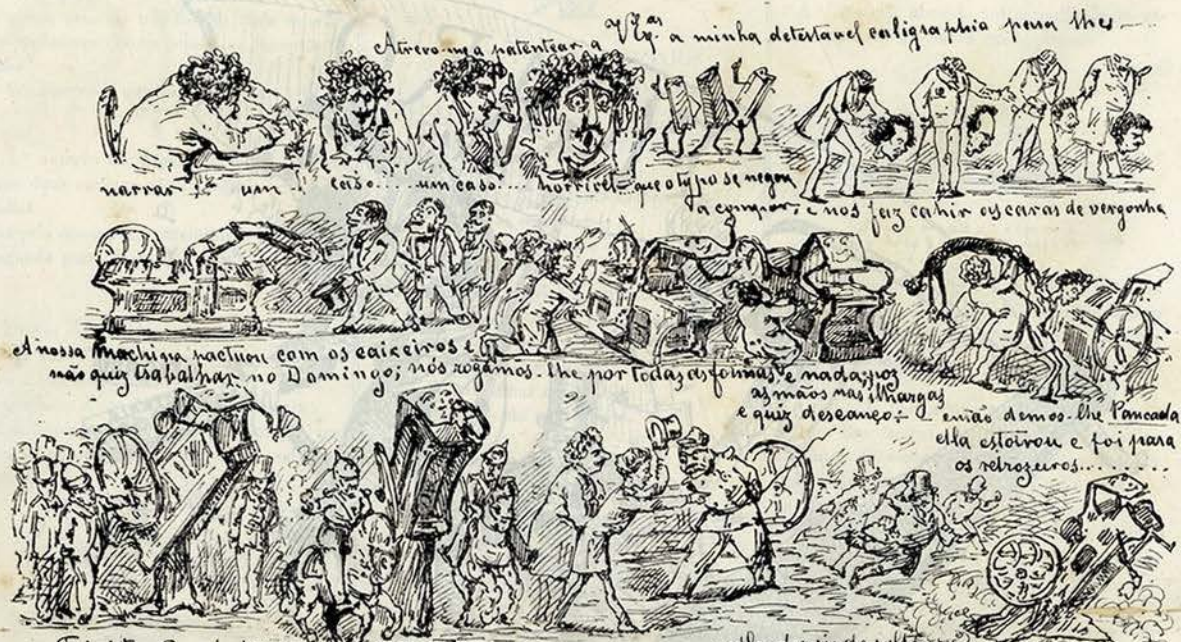 Atrevo-me a patentear a V.Ex.as a minha detestavel caligraphia para lhes
narrar um caso.... um caso... horrivel que o typo se negou
a compor, e nos faz cahir as caras de vergonha
A nossa machina pactuou com os caixeiros e
não quiz trabalhar no Domingo; nós rogámos-lhe por todas as formas e nada; poz
as mãos nas ilhargas
e quiz descanço; então demos-lhe Pancada
ella estoirou e foi para
os retrozeiros........